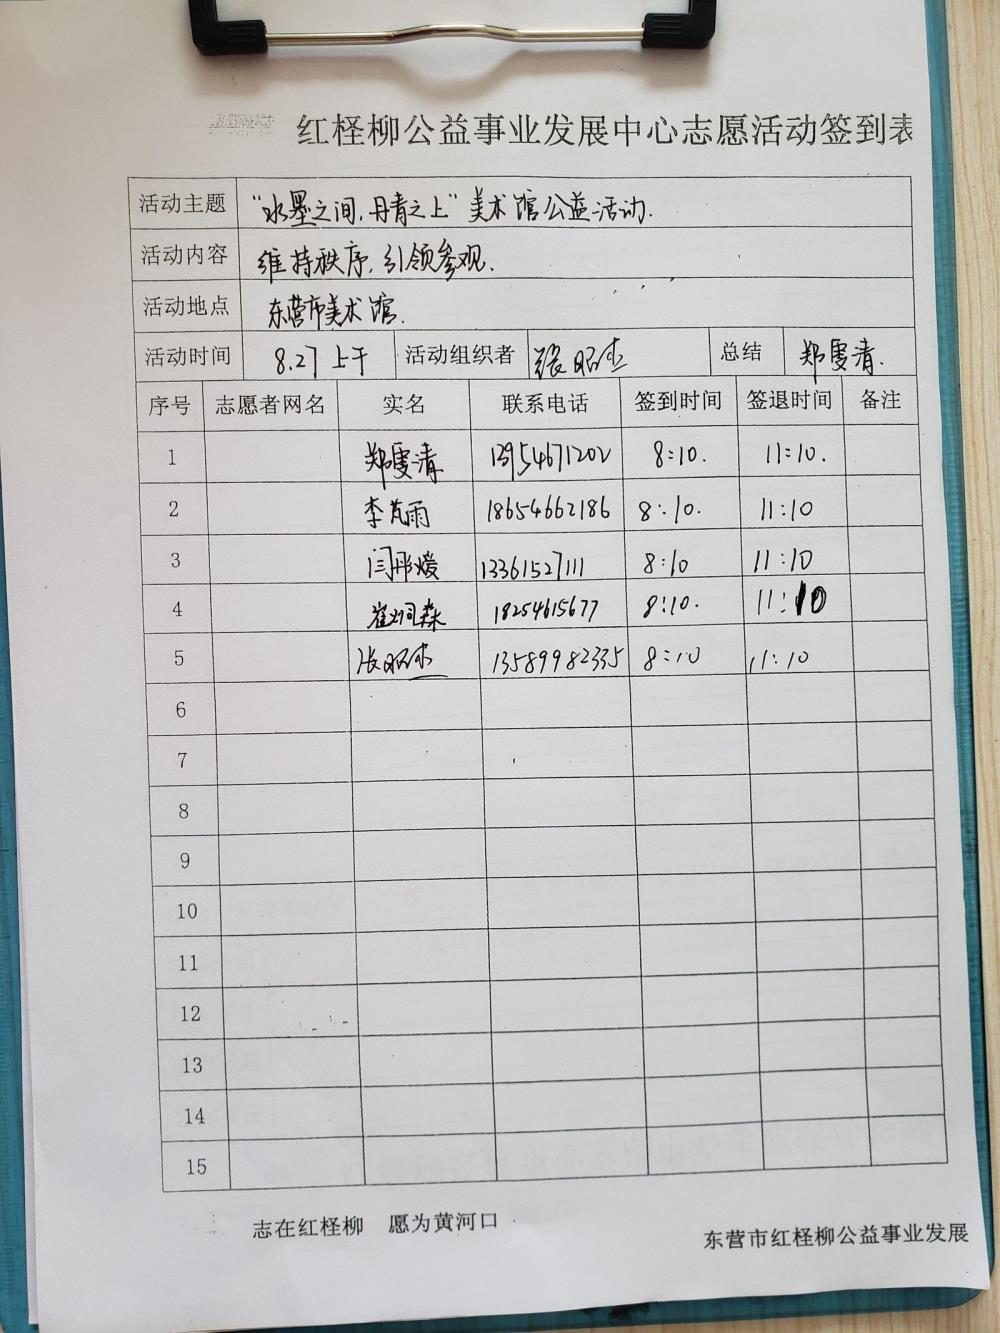 红柽柳公益事业发展中心志愿活动签到表
活动主题 "水墨之间,丹青之上"美术馆公益活动.
活动内容 维持秩序,引领参观.
活动地点 东营市美术馆.
活动时间 8.27 上午 活动组织者 张昭杰 总结 郑雯清.
序号 志愿者网名 实名 联系电话 签到时间 签退时间 备注
1 郑雯清 13954671202 8:10. 11:10.
2 李芃雨 18654662186 8:10. 11:10
3 闫彤媛 13361527111 8:10 11:10
4 崔 森 18254615677 8:10. 11:10
5 张昭杰 13589982335 8:10 11:10
6
7
8
9
10
11
12
13
14
15
志在红柽柳 愿为黄河口
东营市红柽柳公益事业发展